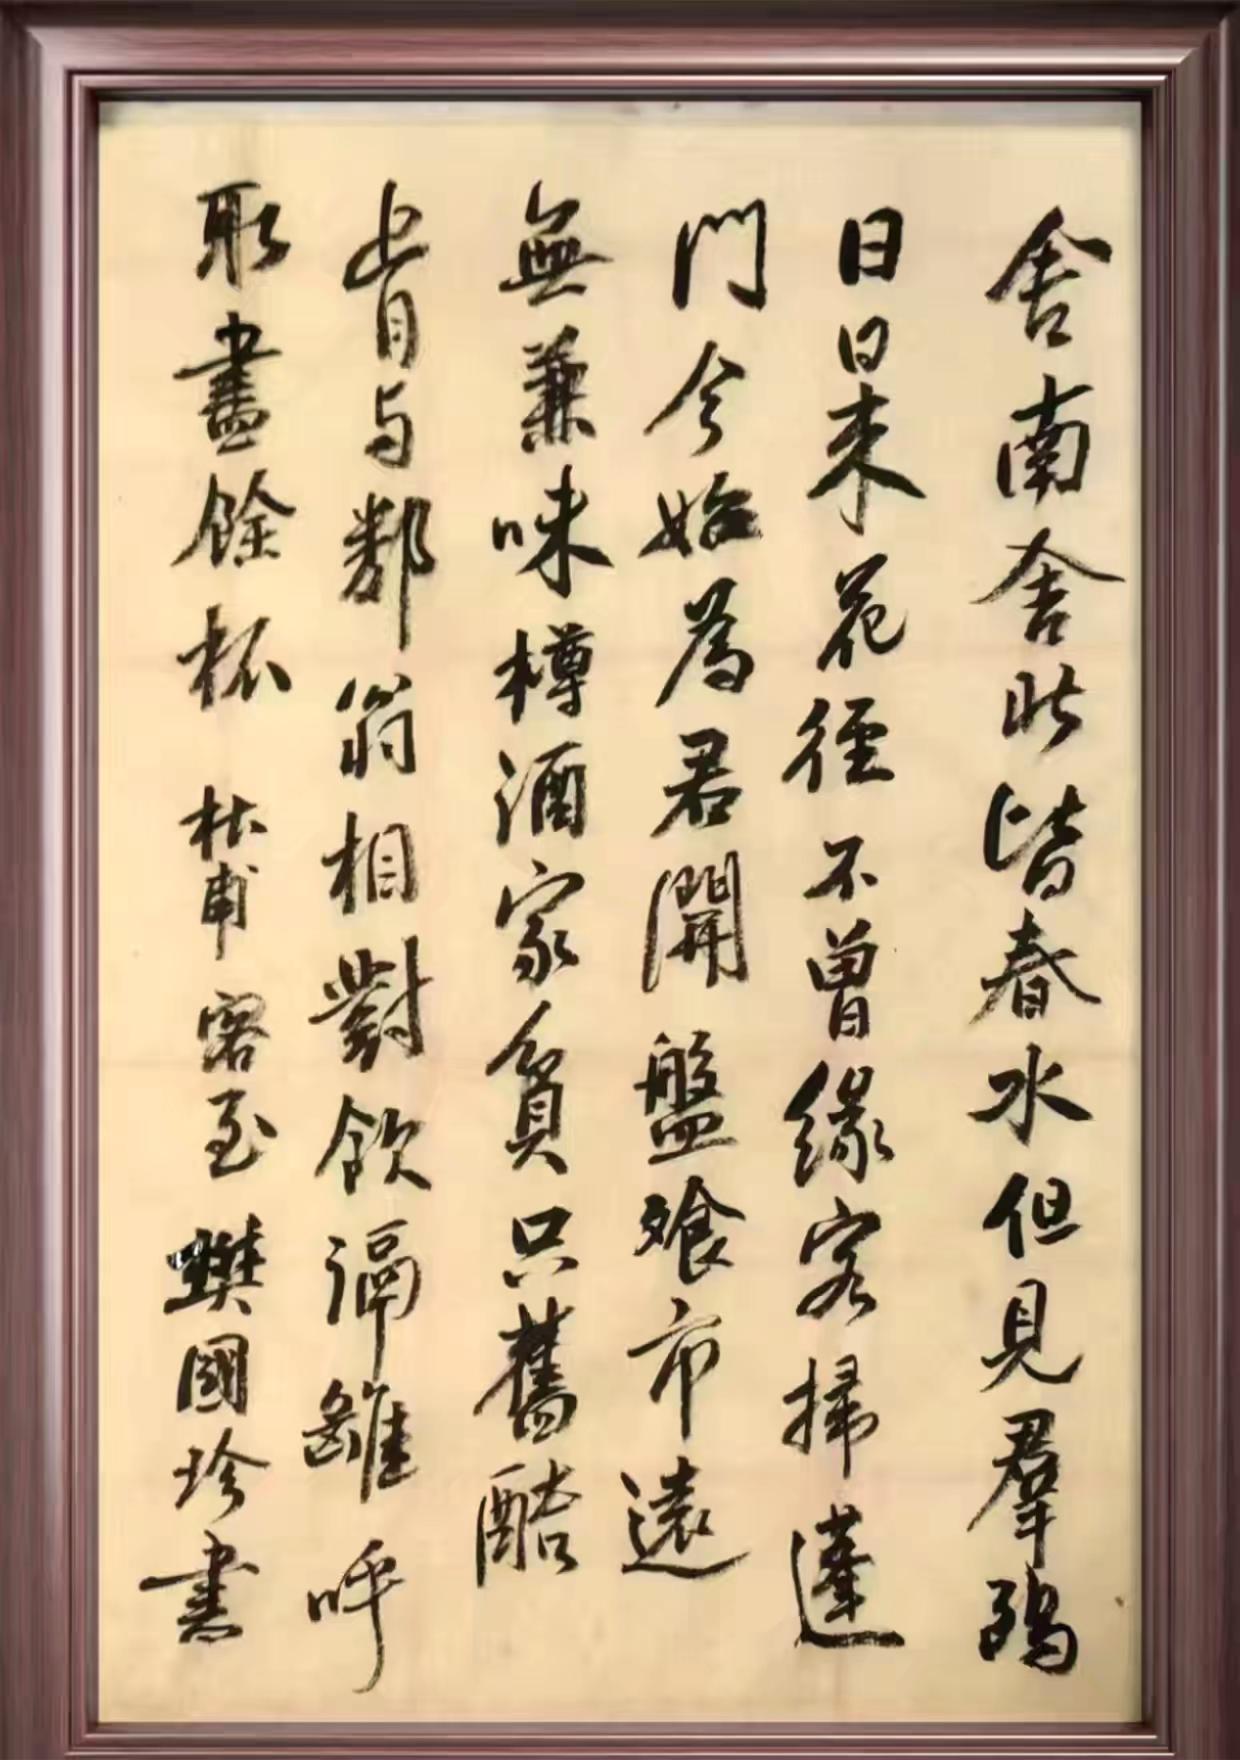 舍南舍北皆春水但見羣鷗
日日来花徑不曾緣客掃蓬
門今始為君開盤飧市遠
無兼味樽酒家貧只舊醅
肯与鄰翁相對飲隔離呼
取盡餘杯 杜甫 客至 樊國珍書